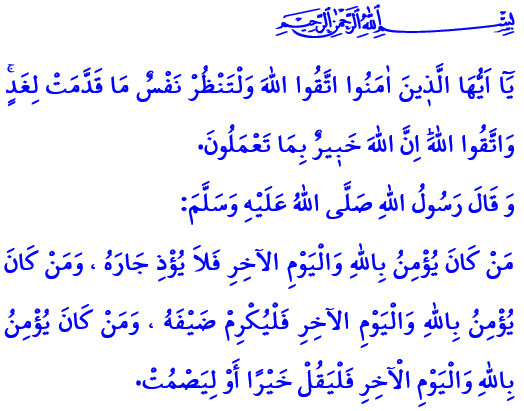 بِسْمِ اللهِ الرَّحْمٰنِ الرَّحِيمِ
يَٓا اَيُّهَا الَّذ۪ينَ اٰمَنُوا اتَّقُوا اللهَ وَلْتَنْظُرْ نَفْسٌ مَا قَدَّمَتْ لِغَدٍۚ
وَاتَّقُوا اللهَۜ اِنَّ اللهَ خَب۪يرٌ بِمَا تَعْمَلُونَ.
وَ قَالَ رَسُولُ اللهِ صَلَّى اللهُ عَلَيْهِ وَسَلَّمَ:
مَنْ كَانَ يُؤْمِنُ بِاللهِ وَالْيَوْمِ الآخِرِ فَلاَ يُؤْذِ جَارَهُ ، وَمَنْ كَانَ
يُؤْمِنُ بِاللهِ وَالْيَوْمِ الآخِرِ فَلْيُكْرِمْ ضَيْفَهُ ، وَمَنْ كَانَ يُؤْمِنُ
بِاللهِ وَالْيَوْمِ الْآخِرِ فَلْيَقُلْ خَيْرًا أَوْ لِيَصْمُتْ.